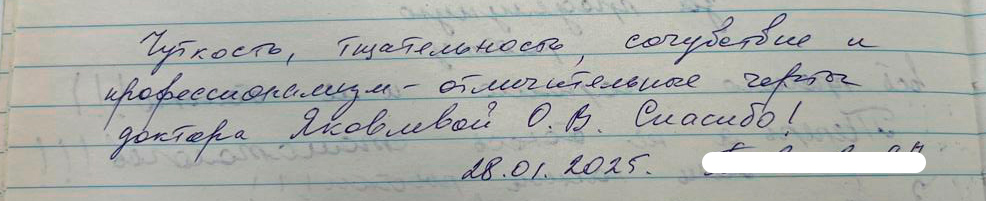 Чуткость, тщательность, сочувствие и
профессионализм - отличительные черты
доктора Яковлевой О. В. Спасибо!
28.01.2025.